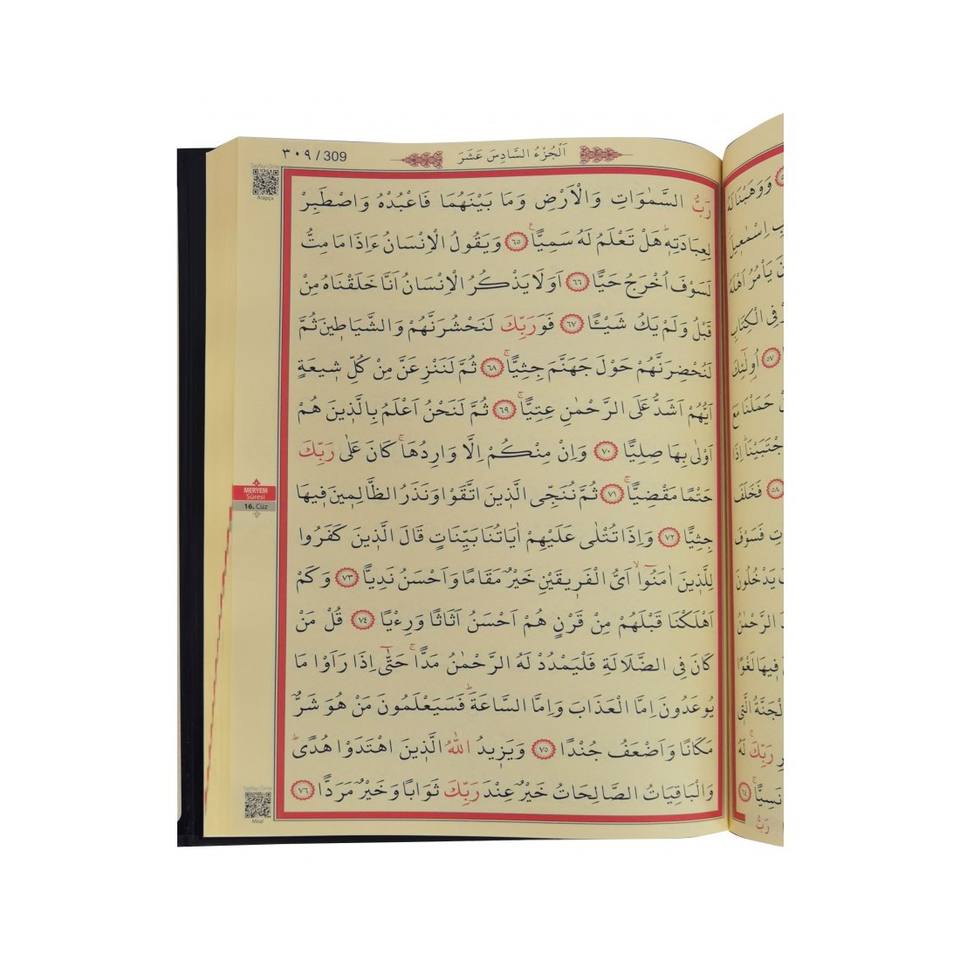 ٣٠٩ / 309
اَلْجُزْءُ السَّادِسَ عَشَرَ
Arapça
رَبُّ السَّمٰوَاتِ وَالْاَرْضِ وَمَا بَيْنَهُمَا فَاعْبُدْهُ وَاصْطَبِرْ
لِعِبَادَتِه۪ۜ هَلْ تَعْلَمُ لَهُ سَمِيًّا۟ ﴿٦٥﴾ وَيَقُولُ الْاِنْسَانُ ءَاِذَا مَا مِتُّ
لَسَوْفَ اُخْرَجُ حَيًّا ﴿٦٦﴾ اَوَلَا يَذْكُرُ الْاِنْسَانُ اَنَّا خَلَقْنَاهُ مِنْ
قَبْلُ وَلَمْ يَكُ شَيْـًٔا ﴿٦٧﴾ فَوَرَبِّكَ لَنَحْشُرَنَّهُمْ وَالشَّيَاط۪ينَ ثُمَّ
لَنُحْضِرَنَّهُمْ حَوْلَ جَهَنَّمَ جِثِيًّاۚ ﴿٦٨﴾ ثُمَّ لَنَنْزِعَنَّ مِنْ كُلِّ ش۪يعَةٍ
اَيُّهُمْ اَشَدُّ عَلَى الرَّحْمٰنِ عِتِيًّاۚ ﴿٦٩﴾ ثُمَّ لَنَحْنُ اَعْلَمُ بِالَّذ۪ينَ هُمْ
اَوْلٰى بِهَا صِلِيًّا ﴿٧٠﴾ وَاِنْ مِنْكُمْ اِلَّا وَارِدُهَاۚ كَانَ عَلٰى رَبِّكَ
حَتْمًا مَقْضِيًّاۚ ﴿٧١﴾ ثُمَّ نُنَجِّي الَّذ۪ينَ اتَّقَوْا وَنَذَرُ الظَّالِم۪ينَ ف۪يهَا
جِثِيًّا ﴿٧٢﴾ وَاِذَا تُتْلٰى عَلَيْهِمْ اٰيَاتُنَا بَيِّنَاتٍ قَالَ الَّذ۪ينَ كَفَرُوا
لِلَّذ۪ينَ اٰمَنُٓواۙ اَيُّ الْفَر۪يقَيْنِ خَيْرٌ مَقَامًا وَاَحْسَنُ نَدِيًّا ﴿٧٣﴾ وَكَمْ
اَهْلَكْنَا قَبْلَهُمْ مِنْ قَرْنٍ هُمْ اَحْسَنُ اَثَاثًا وَرِءْيًا ﴿٧٤﴾ قُلْ مَنْ
كَانَ فِي الضَّلَالَةِ فَلْيَمْدُدْ لَهُ الرَّحْمٰنُ مَدًّاۚ حَتّٰٓى اِذَا رَاَوْا مَا
يُوعَدُونَ اِمَّا الْعَذَابَ وَاِمَّا السَّاعَةَۜ فَسَيَعْلَمُونَ مَنْ هُوَ شَرٌّ
مَكَانًا وَاَضْعَفُ جُنْدًا ﴿٧٥﴾ وَيَز۪يدُ اللّٰهُ الَّذ۪ينَ اهْتَدَوْا هُدًىۜ
وَالْبَاقِيَاتُ الصَّالِحَاتُ خَيْرٌ عِنْدَ رَبِّكَ ثَوَابًا وَخَيْرٌ مَرَدًّا ﴿٧٦﴾
MERYEM
Sûresi
16. Cüz
Meal
وَوَهَبْنَا لَهُ
اِسْمٰع۪يلَ
يَأْمُرُ اَهْلَهُ
فِي الْكِتَابِ
﴿٥٧﴾ اُو۬لٰٓئِكَ
حَمَلْنَا مَعَ
اِذَا
﴿٥٨﴾ فَخَلَفَ
فَسَوْفَ
يَدْخُلُونَ
الرَّحْمٰنُ
ف۪يهَا لَغْوًا
الْجَنَّةُ الَّت۪ي
رَبِّكَۚ لَهُ
نَسِيًّاۚ ﴿٦٤﴾
رَبُّ